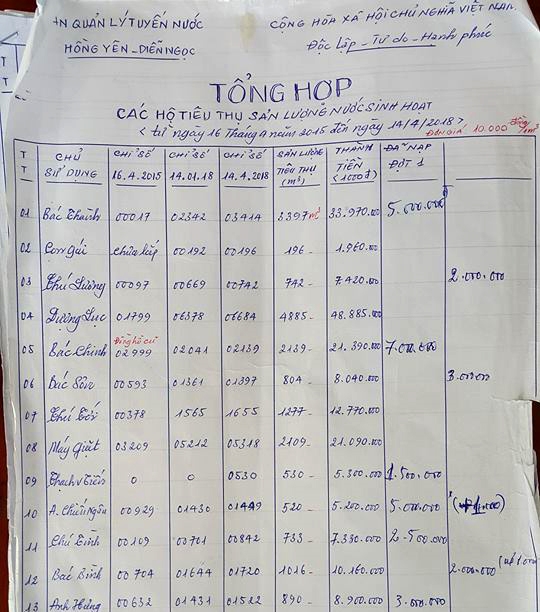 QUẢN LÝ TUYẾN NƯỚC
HỒNG YÊN - DIỄN NGỌC
CỘNG HÒA XÃ HỘI CHỦ NGHĨA VIỆT NAM
Độc Lập - Tự do - Hạnh phúc
TỔNG HỢP
CÁC HỘ TIÊU THỤ SẢN LƯỢNG NƯỚC SINH HOẠT
< từ ngày 16 tháng 4 năm 2015 đến ngày 14/4/2018 >
ĐƠN GIÁ 10.000 đồng/m³
TT CHỦ SỬ DỤNG CHỈ SỐ 16.4.2015 CHỈ SỐ 14.01.18 CHỈ SỐ 14.4.2018 SẢN LƯỢNG TIÊU THỤ (m³) THÀNH TIỀN <1000đ> ĐÃ NẠP ĐỢT 1
01 Bác Thành 00017 02342 03414 3397 m³ 33.970.000 5.000.000đ
02 Con gái chưa lắp 00192 00196 196 - 1.960.000
03 Chú Lương 00097 00669 00742 742 - 7.420.000 2.000.000
04 Dương Lục 01799 06378 06684 4885 - 48.885.000
05 Bác Chinh Đồng hồ cũ 02999 02041 02139 2139 - 21.390.000 7.000.000
06 Bác Sơn 00593 01361 01397 804 - 8.040.000 3.000.000
07 Chú 00378 1565 1655 1277 - 12.770.000
08 Máy Giặt 03209 05212 05318 2109 - 21.090.000
09 0 0 0530 530 - 5.300.000 1.500.000
10 A. Chiến Ngân 00929 01430 01449 520 - 5.200.000 5.000.000
11 Chú Bình 00109 00701 00842 733 - 7.330.000 2.500.000
12 Bác Bình 00704 01644 01720 1016 - 10.160.000 2.000.000
13 Anh Hưng 00632 01431 01522 890 - 8.900.000 3.000.000